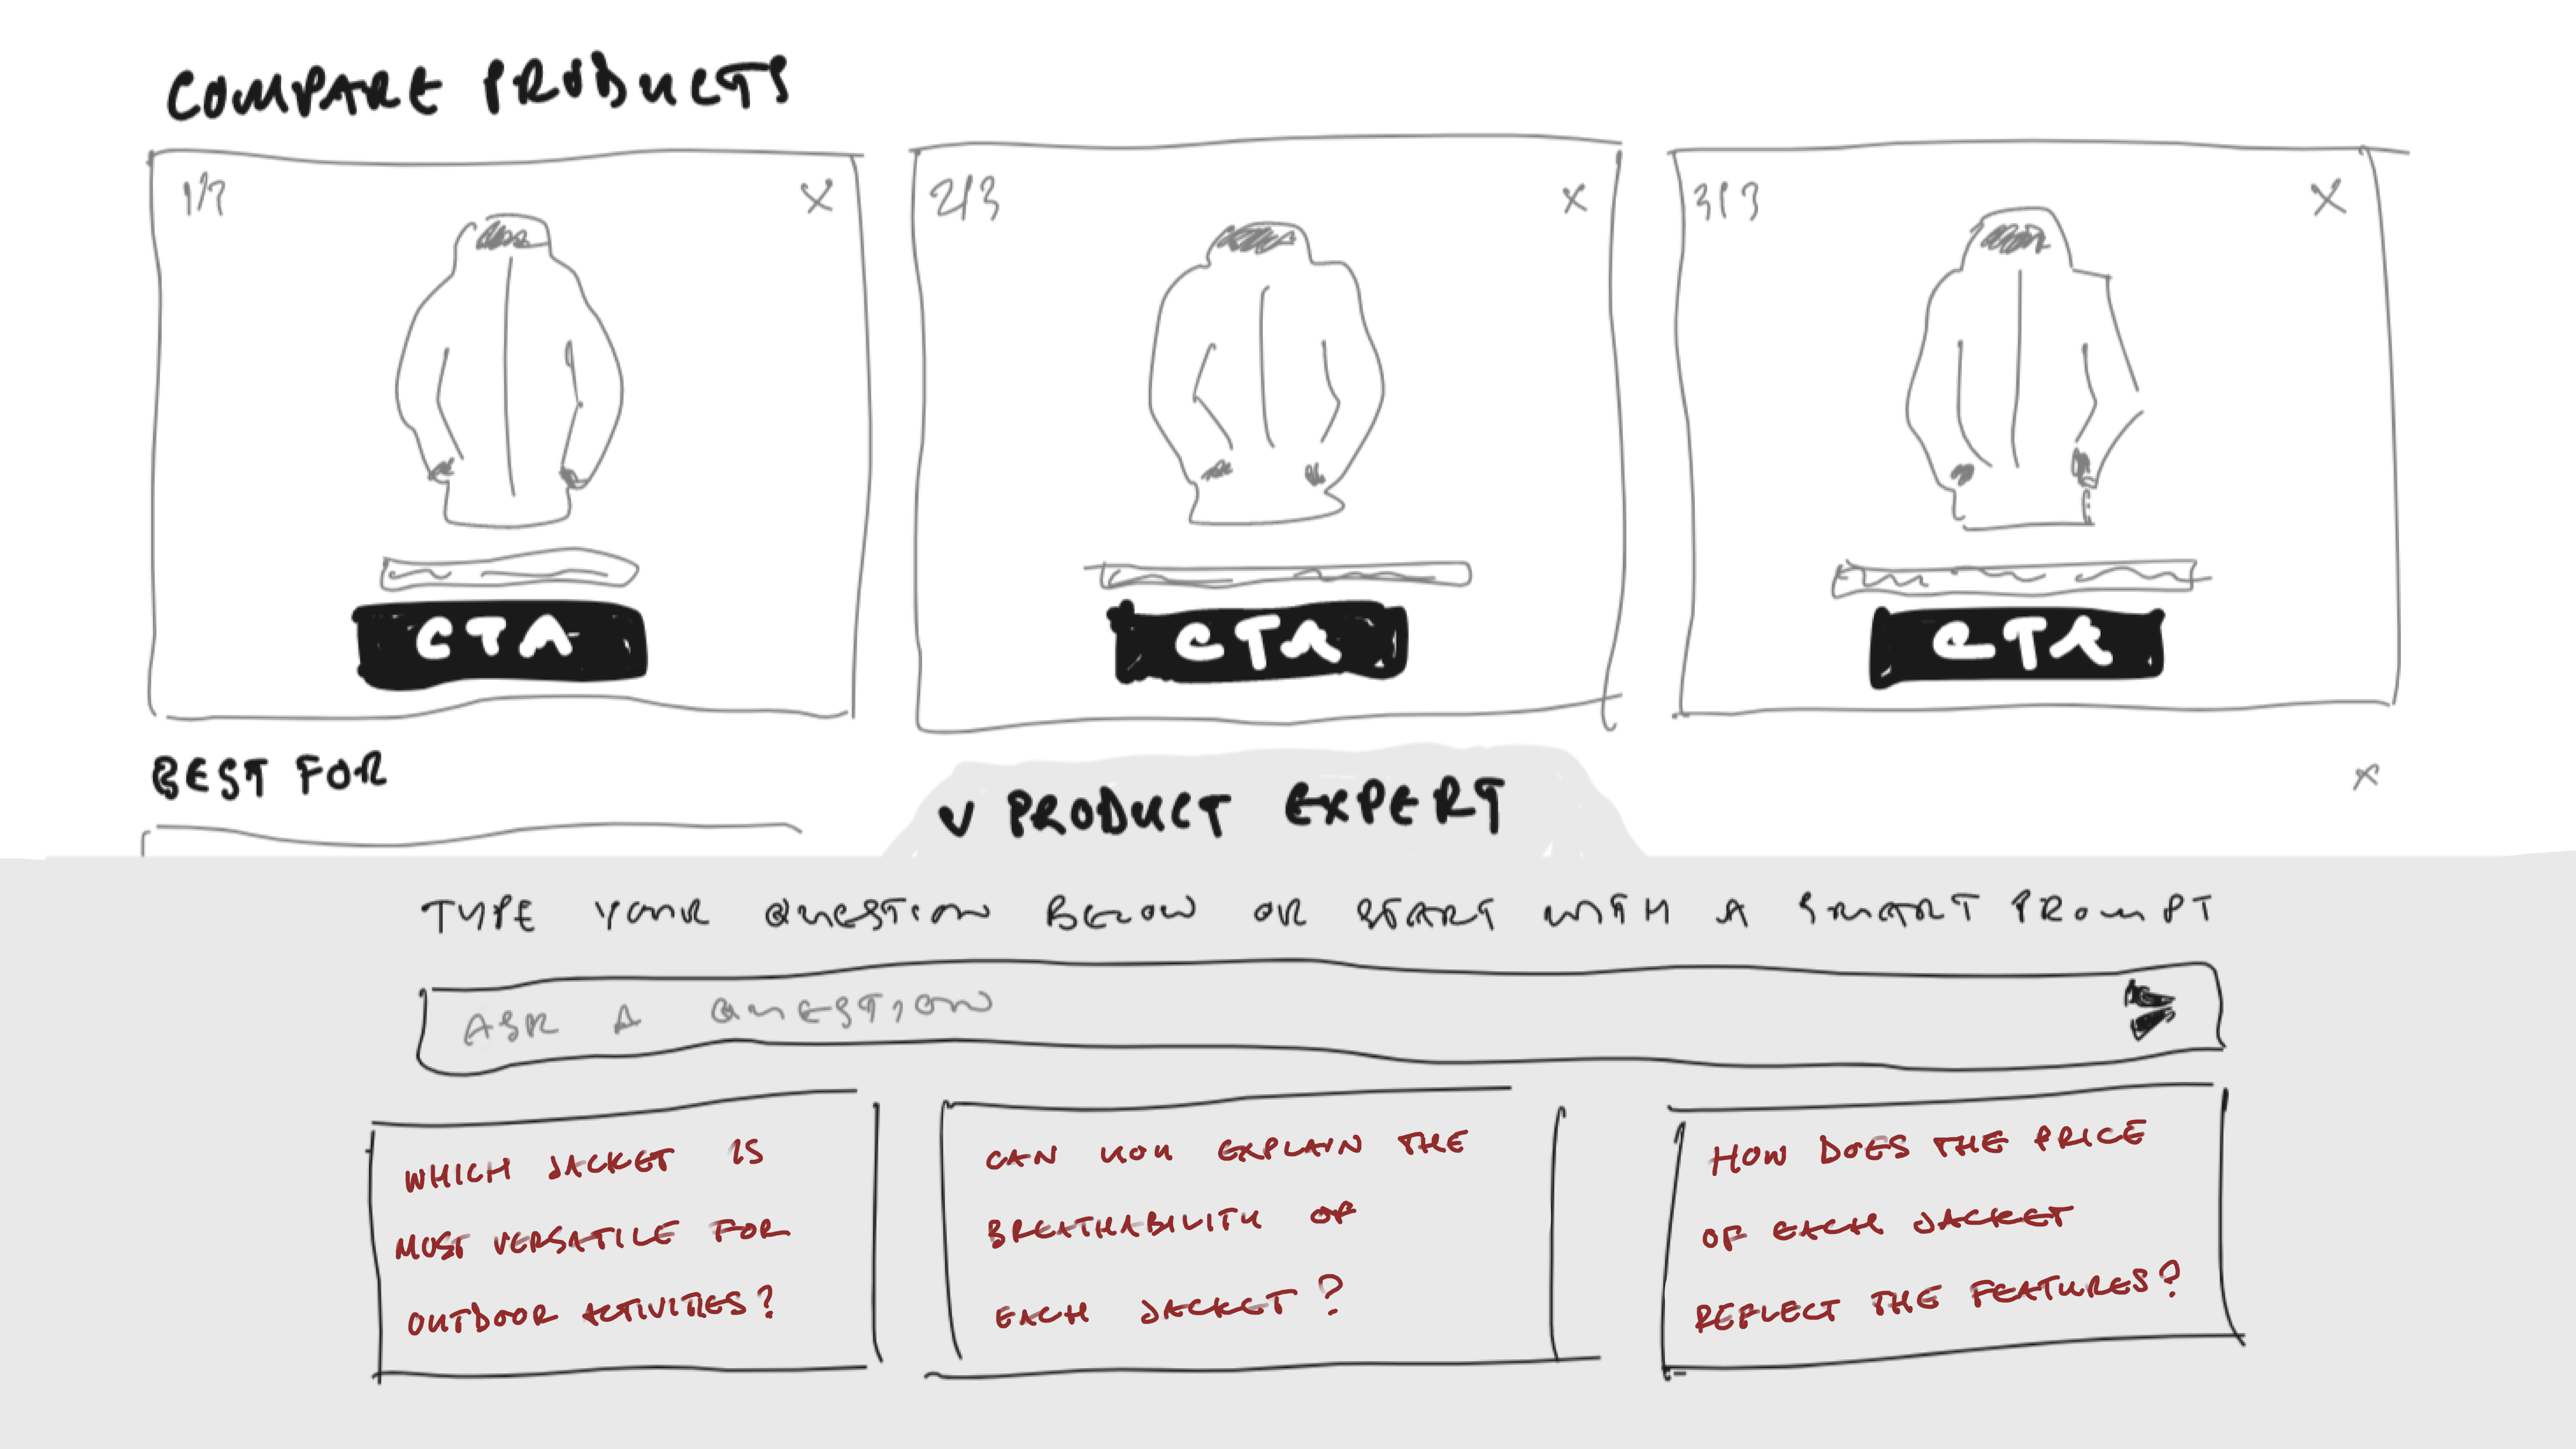 COMPARE PRODUCTS
1/3 X
2/3 X
3/3 X
CTA
CTA
CTA
BEST FOR
X
V PRODUCT EXPERT
TYPE YOUR QUESTION BELOW OR START WITH A SMART PROMPT
ASK A QUESTION
WHICH JACKET IS
MOST VERSATILE FOR
OUTDOOR ACTIVITIES?
CAN YOU EXPLAIN THE
BREATHABILITY OF
EACH JACKET?
HOW DOES THE PRICE
OF EACH JACKET
REFLECT THE FEATURES?